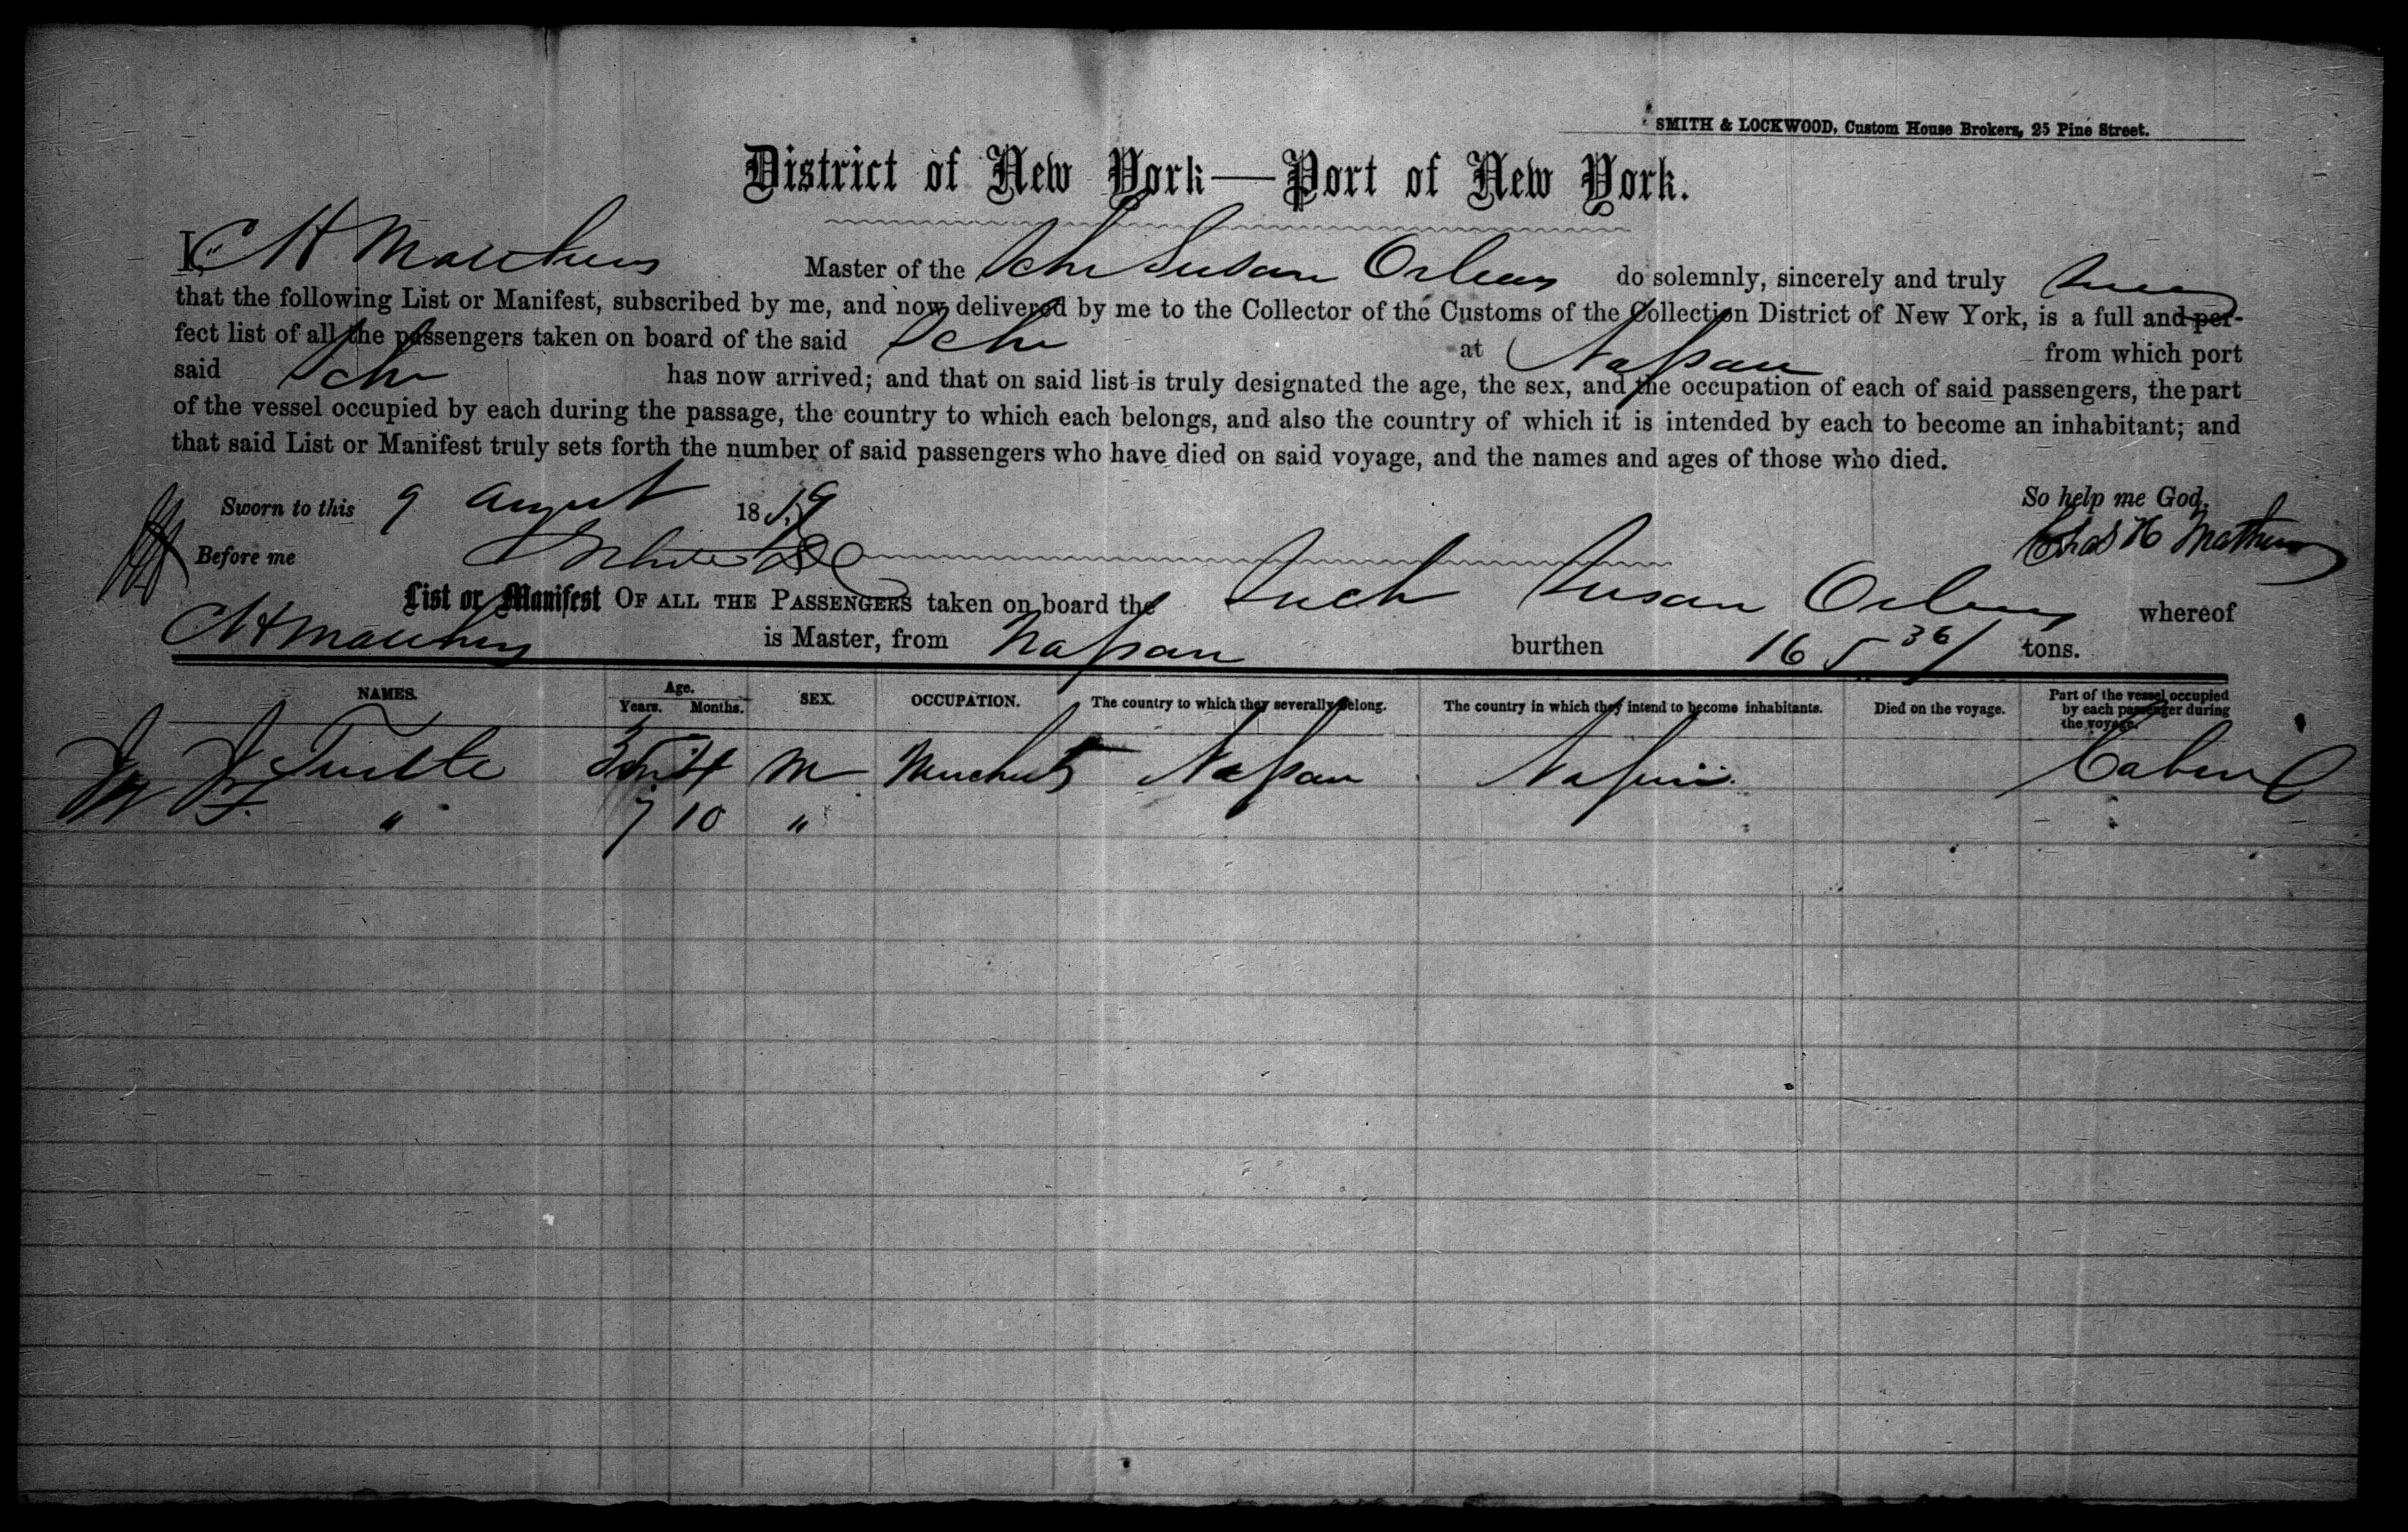 SMITH & LOCKWOOD, Custom House Brokers, 25 Pine Street.
District of New York—Port of New York.
I, C H Matthews Master of the Schr Susan Orleans do solemnly, sincerely and truly swear
that the following List or Manifest, subscribed by me, and now delivered by me to the Collector of the Customs of the Collection District of New York, is a full and per-
fect list of all the passengers taken on board of the said Schr at Nassau from which port
said Schr has now arrived; and that on said list is truly designated the age, the sex, and the occupation of each of said passengers, the part
of the vessel occupied by each during the passage, the country to which each belongs, and also the country of which it is intended by each to become an inhabitant; and
that said List or Manifest truly sets forth the number of said passengers who have died on said voyage, and the names and ages of those who died.
Sworn to this 9 August 18 So help me God.
Before me Chas H Mathews
List or Manifest OF ALL THE PASSENGERS taken on board the Susan whereof
C H Matthews is Master, from Nassau burthen 165 36/ tons.
NAMES. Age. Years. Months. SEX. OCCUPATION. The country to which they severally belong. The country in which they intend to become inhabitants. Died on the voyage. Part of the vessel occupied by each passenger during the voyage.
Tuttle M Merchant Nassau Nassau Cabin
" 7 10 "